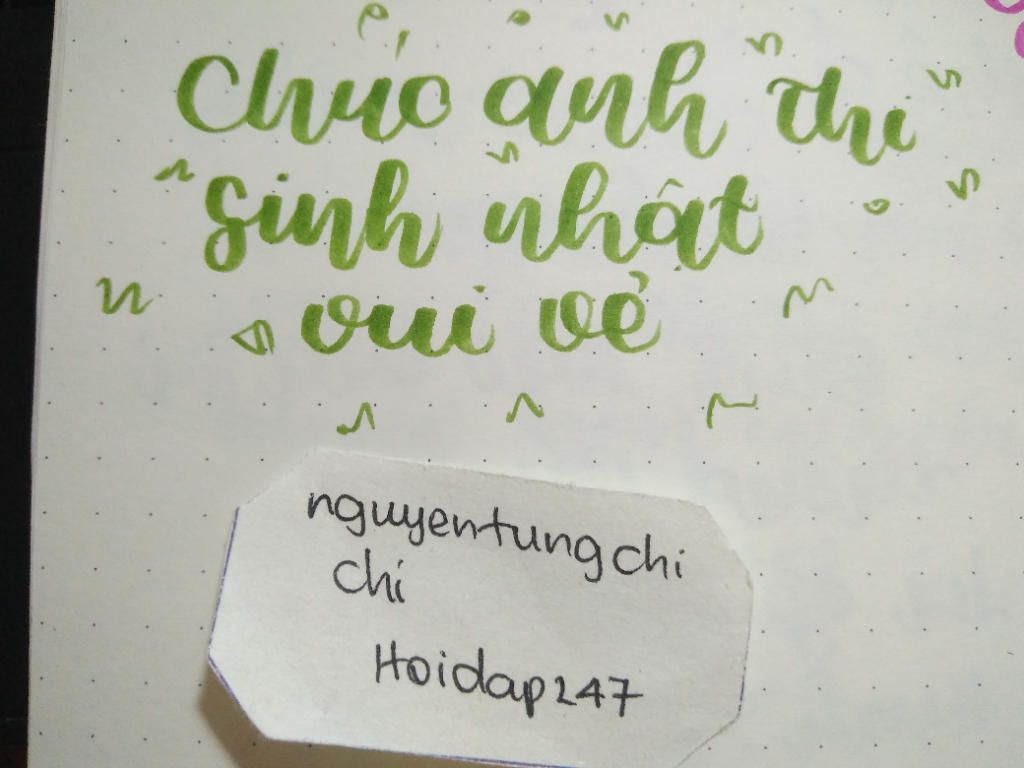 Chúc anh Thi
sinh nhật
vui vẻ
nguyentungchi
chi
Hoidap247